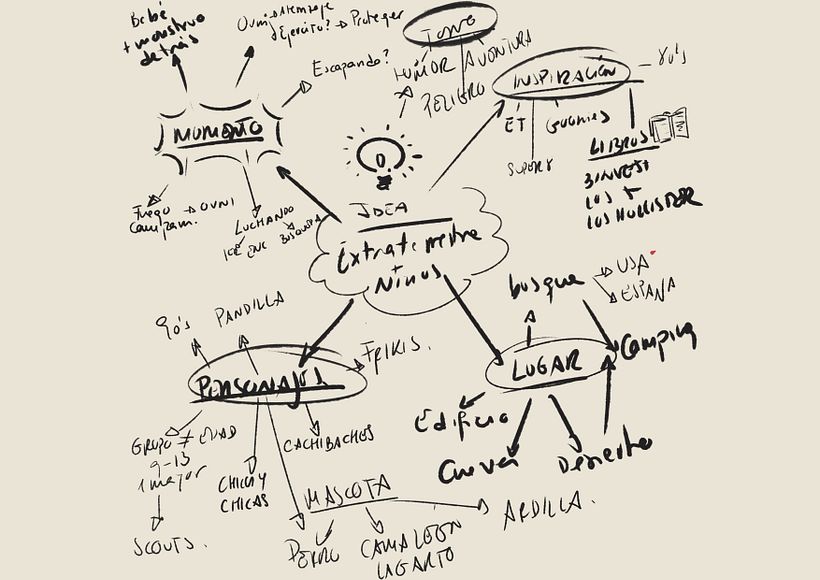 Bebé
+ monstruo
detrás
Ejército? → Proteger
Escapando?
MOMENTO
Fuego
campam. → OVNI
LUCHANDO
BUSQUEDA
TONO
HUMOR
AVENTURA
PELIGRO
INSPIRACIÓN
ET
GOONIES
SUPER 8
LIBROS
3 INVEST
LOS HOLLISTER
IDEA
Extraterrestre
+
Niños
90's
PANDILLA
FRIKIS.
PERSONAJES
GRUPO ≠ EDAD
9-13
1 mayor
SCOUTS.
CHICOS Y
CHICAS
CACHIBACHES
MASCOTA
PERRO
CAMALEON
LAGARTO
ARDILLA.
bosque
USA
ESPAÑA
LUGAR
Camping
Edificio
Cueva
Desierto